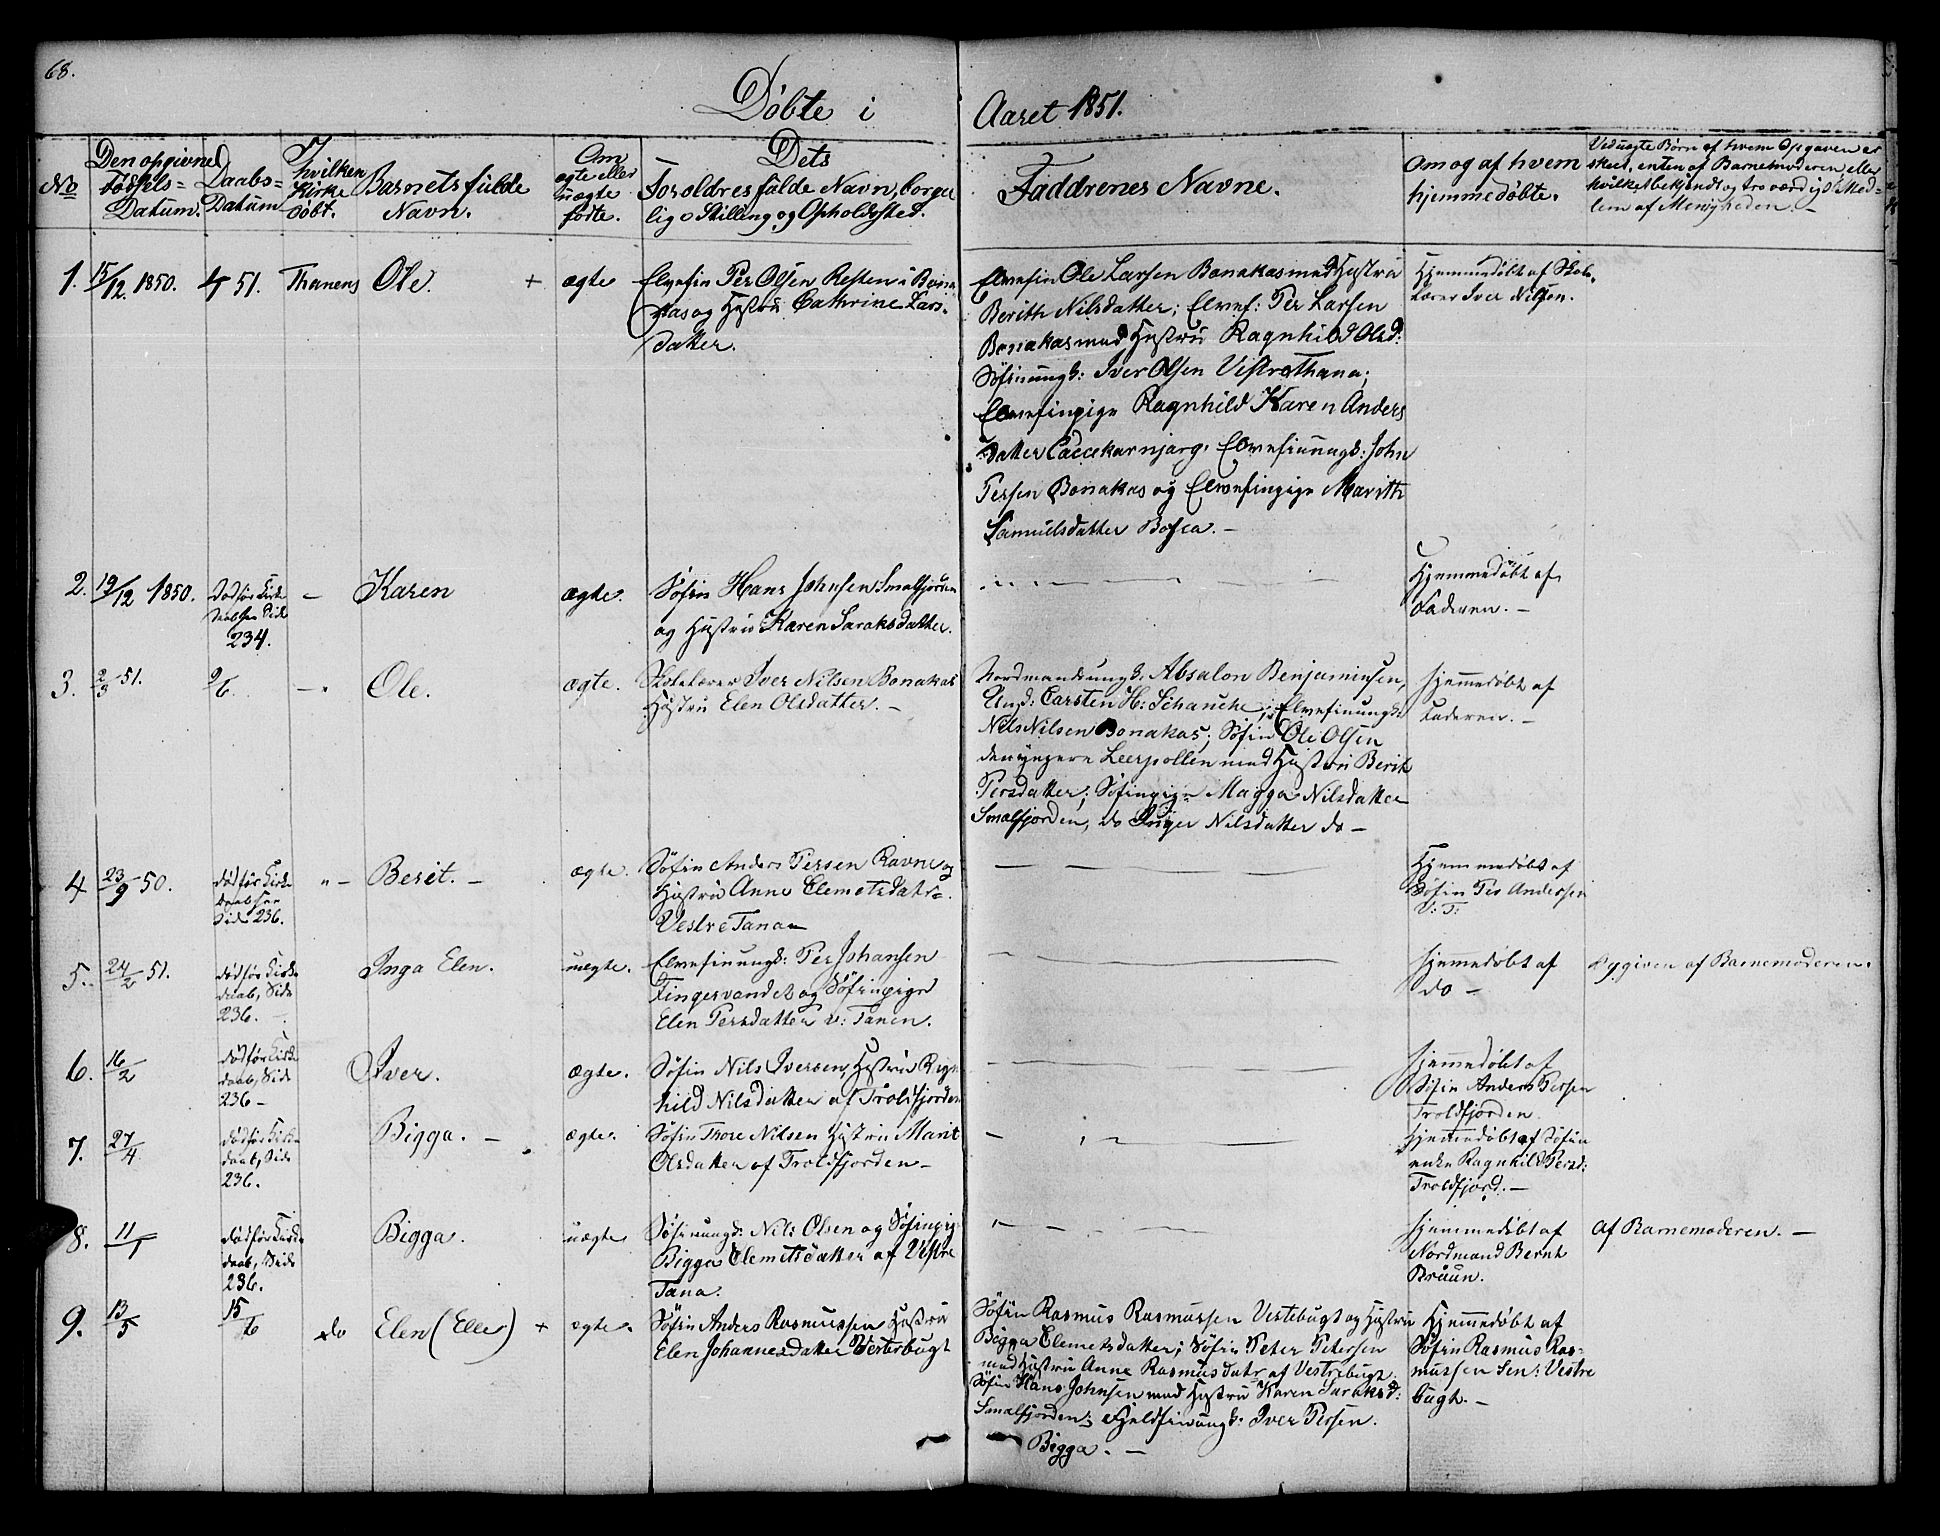 68.
Døbte i Aaret 1851.
No
Den opgivne Fødsels= Datum.
Daabs= Datum
I hvilken Kirke døbt.
Barnets fulde Navn.
Om ægte eller uægte fødte.
Dets Forældres fulde Navn, borger lig Stilling og Opholdssted.
Faddrenes Navne.
Om og af hvem hjemmedøbte.
Ved uægte Børn af hvem Opgaven er skeet, enten af Barnemoderen eller hvilket bekjendt og troværdigst Medlem af Menigheden. –
1. 15/12 1850. 51. Thanens Ole. + ægte
Elvefin Per Olsen Resten i Bona
kas og Hustru Cathrine Lars-
datter.
Elvefin Ole Larsen Bonakas med Hustru
Berith Nilsdatter; Elvef: Per Larsen
Bonakas med Hustru Ragnhild Olsd:
Søfinungk: Iver Olsen Vestrethana;
Elvefinpige Ragnhild Karen Anders
datter Elvefinungk: John
Persen Bonakas og Elvefinpige Marith
Samuelsdatter
Hjemmedøbt af Skole
lærer Iver Nilsen.
2. 19/12 1850. Død før Kirke
daaben Side
234.
– Karen ægte.
Søfin Hans Johnsen Smalfjorden
og Hustru Karen Saraksdatter.
Hjemmedøbt af
Faderen. –
3. 2/3 51. 9/6. – Ole. ægte.
Skolelærer Iver Nilsen Bonakas
Hustru Elen Olsdatter. –
Nordmandsungk: Absalon Benjaminsen,
Ungk: Carsten H: Schanche; Elvefinungk:
Nils Nilsen Bonakas; Søfin Ole Olsen
den yngere Leerpollen med Hustru Berit
Persdatter; Søfinpige Magga Nilsdatter
Smalfjorden, do Inger Nilsdatter do –
Hjemmedøbt af
Faderen. –
4 23/9 50. død før Kirke
daaben
Side 236.
" – Berit. – ægte.
Søfin Anders Persen Ravne og
Hustru Anne Clemetsdatr.
Vestre Tana
Hjemmedøbt af
Søfin Per Andersen
V: T:
5. 24/2 51. død før Kirke
daab, Side
236. –
Inga Elen. uægte.
Elvefinungk: Per Johansen
Fingervandet og Søfinpige
Elen Persdatter v: Tanen.
Hjemmedøbt af
do –
Opgiven af Barnemoderen.
6. 16/2 død før Kirke
daab, Side
236 –
Iver. ægte.
Søfin Nils Iversen, Hustru Ragn
hild Nilsdatter af Troldfjorden
Hjemmedøbt af
Søfin Anders Persen
Troldfjorden.
7. 27/4 død før Kirke
daab, Side
236.
Bigga. – ægte.
Søfin Thore Nilsen Hustru Marit
Olsdatter af Troldfjorden –
Hjemmedøbt af Søfin
enke Ragnhild Persd:
Troldfjord. –
8. 11/1 død før Kirke
daab, Side
236.
Bigga. uægte
Søfinungk: Nils Olsen og Søfinpig
Bigga Clemetsdatter af Vestre
Tana.
Hjemmedøbt af
Nordmand Bernt
Bruun.
Af Barnemoderen. –
9. 13/5 15/6 do Elen (Elle) + ægte.
Søfin Anders Rasmussen Hustru
Elen Johannesdatter Vesterbugt
Søfin Rasmus Rasmussen Vestrebugt og Hustru
Bigga Clemetsdatter; Søfin Peter Petersen
med Hustru Anne Rasmusdatr. af Vestrebugt.
Søfin Hans Johnsen med Hustru Karen Saraksd:
Smalfjorden; Fjeldfinungk: Iver Persen.
Bigga. –
Hjemmedøbt af
Søfin Rasmus Ras-
mussen Sen: Vestre
bugt. –